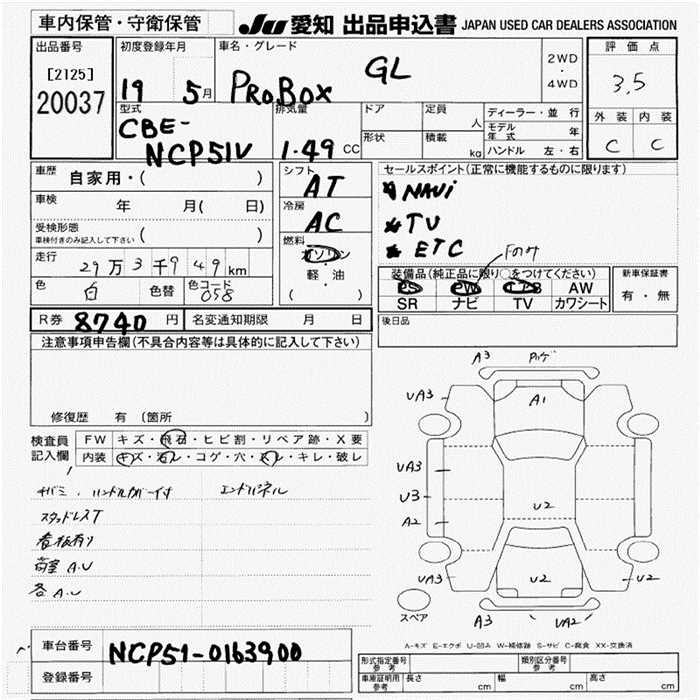 車内保管・守衛保管
JU 愛知 出品申込書 JAPAN USED CAR DEALERS ASSOCIATION
出品番号
[2125]
20037
初度登録年月
19 5月
車名・グレード
PROBOX GL
2WD
・
4WD
評価点
3.5
外装 内装
C C
型式
CBE-
NCP51V
排気量
1.49 CC
ドア
形状
定員 人
積載 kg
ディーラー・並行
モデル年式 年
ハンドル 左・右
車歴 自家用・( )
車検 年 月( 日)
受検形態
車検付きのみ記入して下さい ( )
走行 29万3千949km
色 白 色替 色コード 058
シフト
AT
冷房
AC
燃料
ガソリン
軽・油
( )
セールスポイント(正常に機能するものに限ります)
NAVi
★TV
★ETC
Fのみ
装備品(純正品に限り○をつけてください)
PS PW エアB AW
SR ナビ TV カワシート
新車保証書
有・無
R券 8740 円 名変通知期限 月 日
後日品
注意事項申告欄(不具合内容等は具体的に記入して下さい)
修復歴 有(箇所 )
検査員
記入欄
FW キズ・飛石・ヒビ割・リペア跡・X要
内装 キズ・汚レ・コゲ・穴・スレ・キレ・破レ
チバミ、ハンドルカバー付 エンドパネル
スタッドレスT
看板有り
荷室 A.U
各 A.U
A3
UA3 A1
UA3
U3 U2
A2
UA3 U2 U3
スペア
A3 UA2
A-キズ E-エクボ U-凹み W-補修跡 S-サビ C-腐食 XX-交換済
車台番号 NCP51-0163900
登録番号
形式指定番号 参考 類別区分番号 参考
車庫証明用 参考 長さ cm 幅 cm 高さ cm